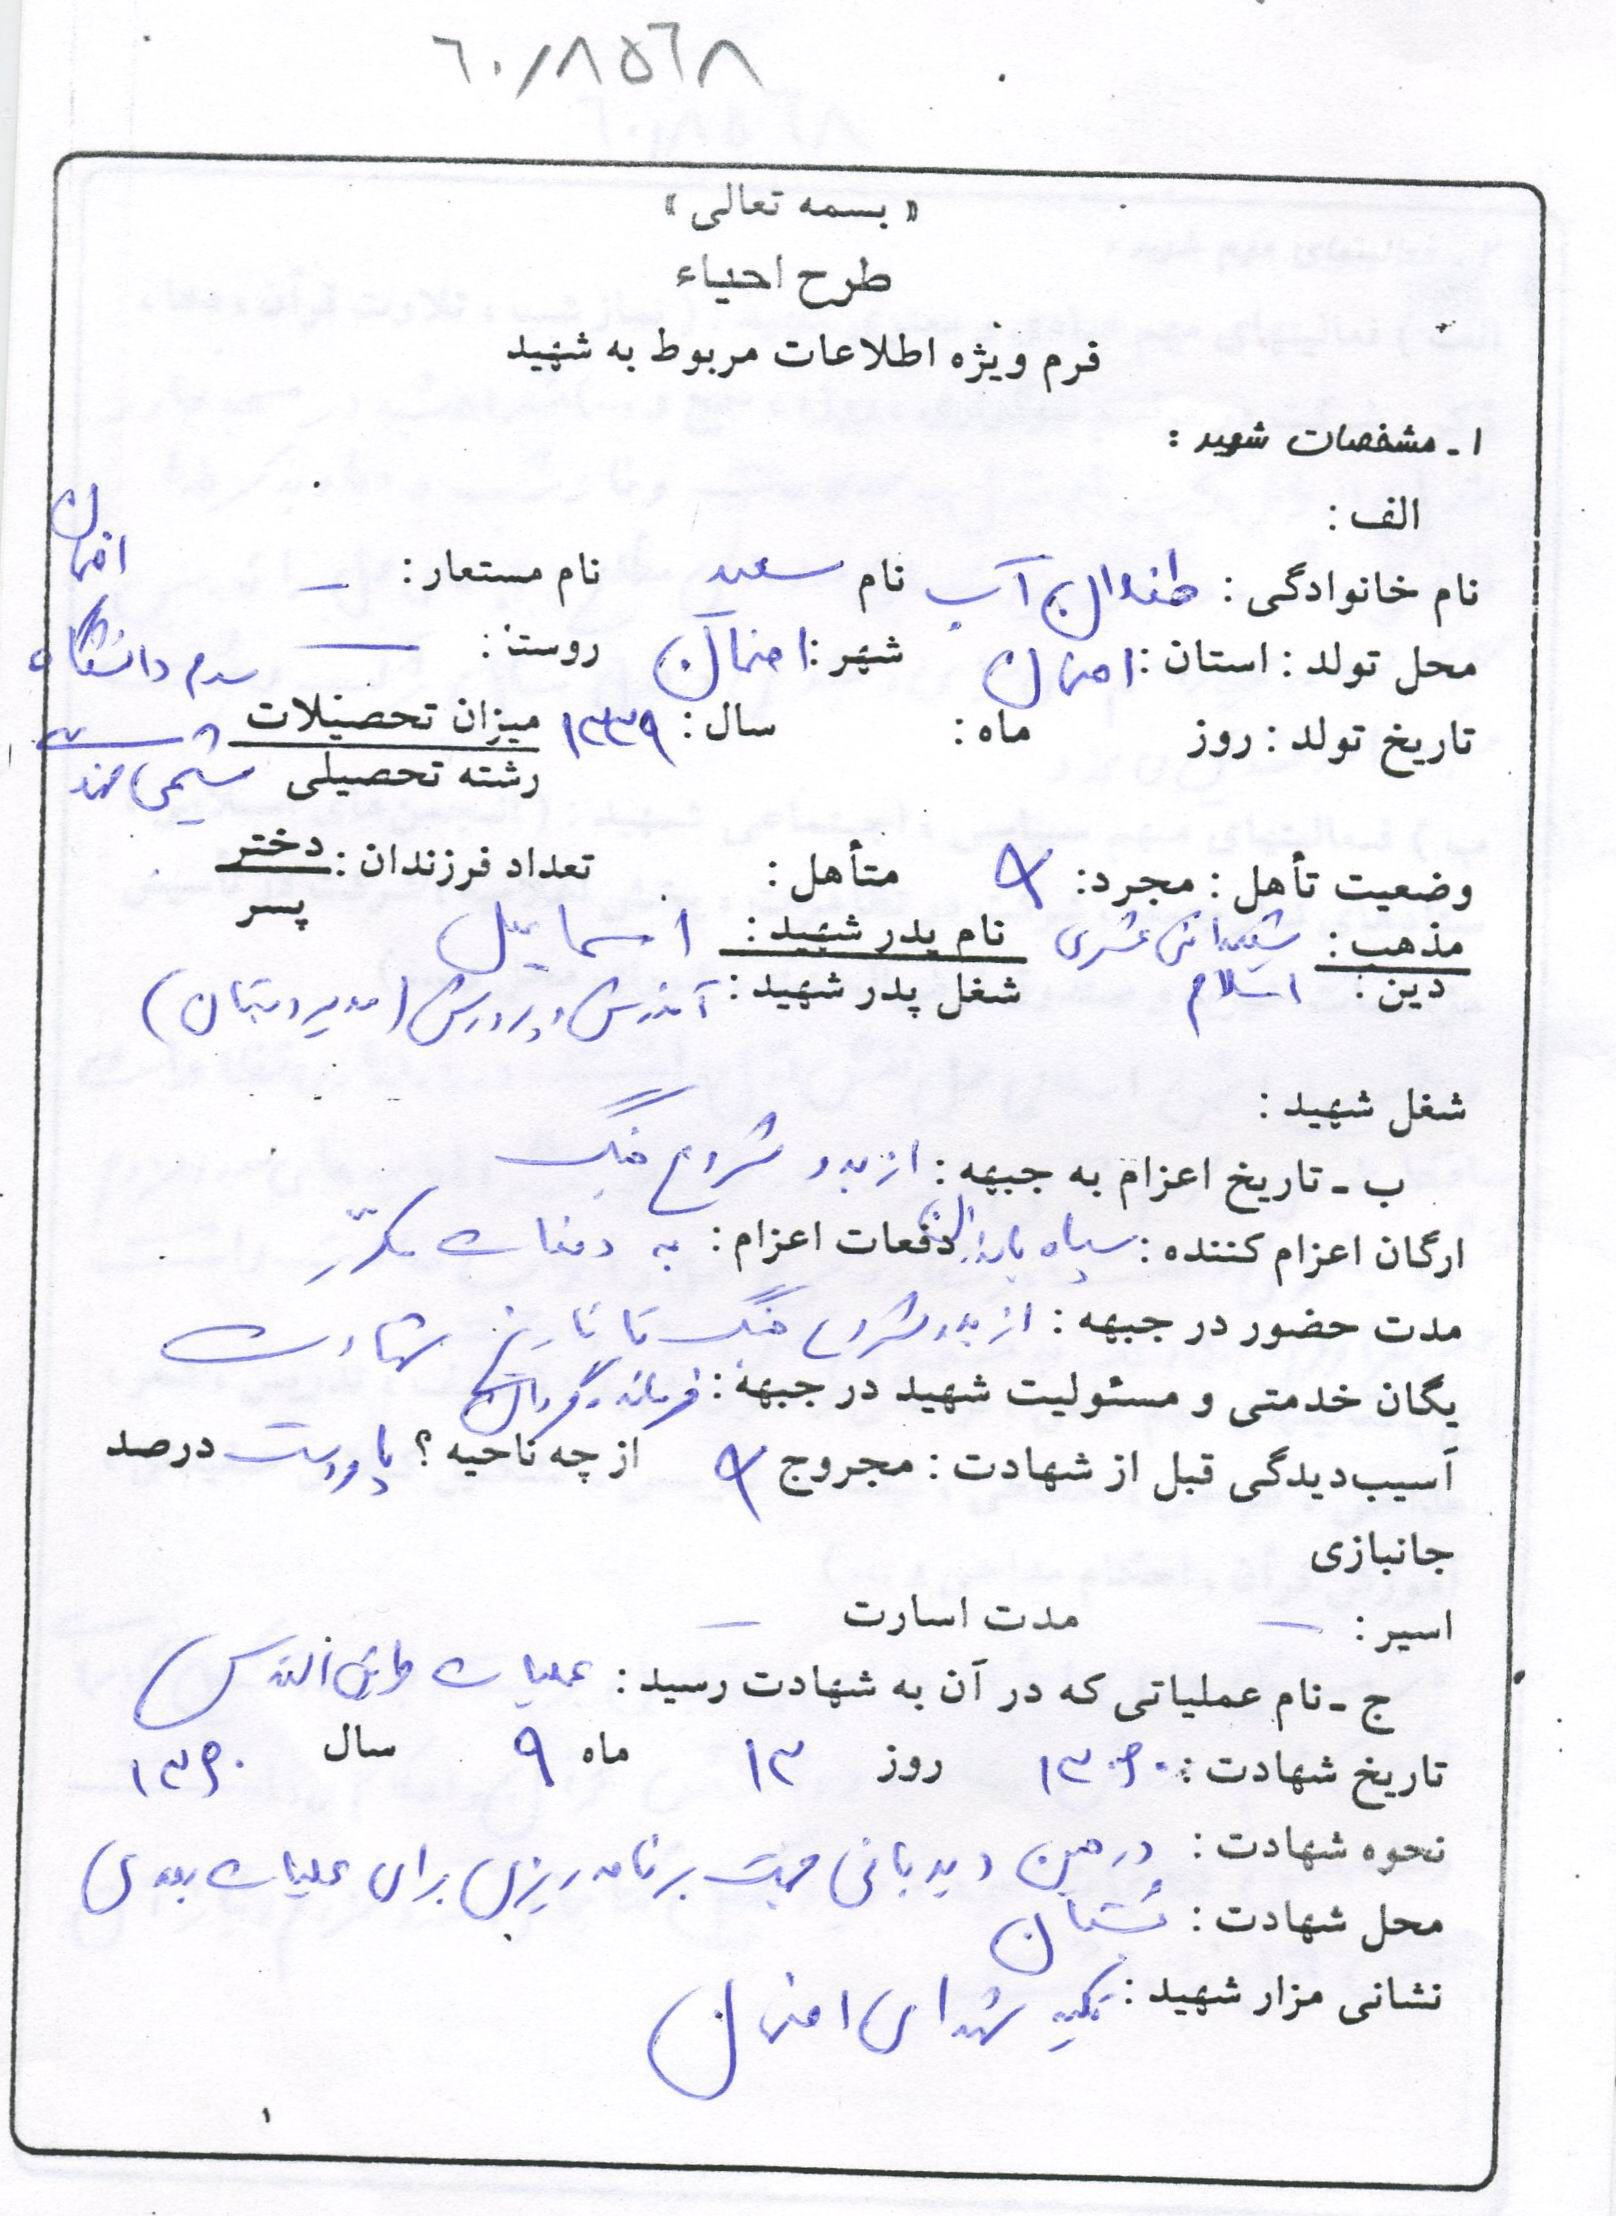 ٦٠/٨٥٦٨
« بسمه تعالی »
طرح احیاء
فرم ویژه اطلاعات مربوط به شهید
۱ـ مشخصات شهید :
الف :
نام خانوادگی : آب نام سعید نام مستعار : ـ
محل تولد : استان : اصفهان شهر : اصفهان روستا : ـ
تاریخ تولد : روز ماه : سال : ۱۳۳۹ میزان تحصیلات سوم دانشگاه اصفهان
رشته تحصیلی شیمی
وضعیت تأهل : مجرد : × متأهل : تعداد فرزندان : دختر
پسر
مذهب : شیعه اثنی عشری نام پدر شهید : اسماعیل
دین : اسلام شغل پدر شهید : آموزش و پرورش (مدیر دبستان)
شغل شهید :
ب ـ تاریخ اعزام به جبهه : از بدو شروع جنگ
ارگان اعزام کننده : سپاه پاسداران دفعات اعزام : به دفعات مکرّر
مدت حضور در جبهه : از بدو شروع جنگ تا تاریخ شهادت
یگان خدمتی و مسئولیت شهید در جبهه : فرمانده گردان
آسیب‌دیدگی قبل از شهادت : مجروح × از چه ناحیه ؟ پا و دست درصد
جانبازی
اسیر : ـ مدت اسارت ـ
ج ـ نام عملیاتی که در آن به شهادت رسید : عملیات طریق القدس
تاریخ شهادت : ۱۳۶۰ روز ۱۳ ماه ۹ سال ۱۳۶۰
نحوه شهادت : در حین دیدبانی جهت برنامه ریزی برای عملیات بعدی
محل شهادت : بُستان
نشانی مزار شهید : تکیه شهدای اصفهان
۱